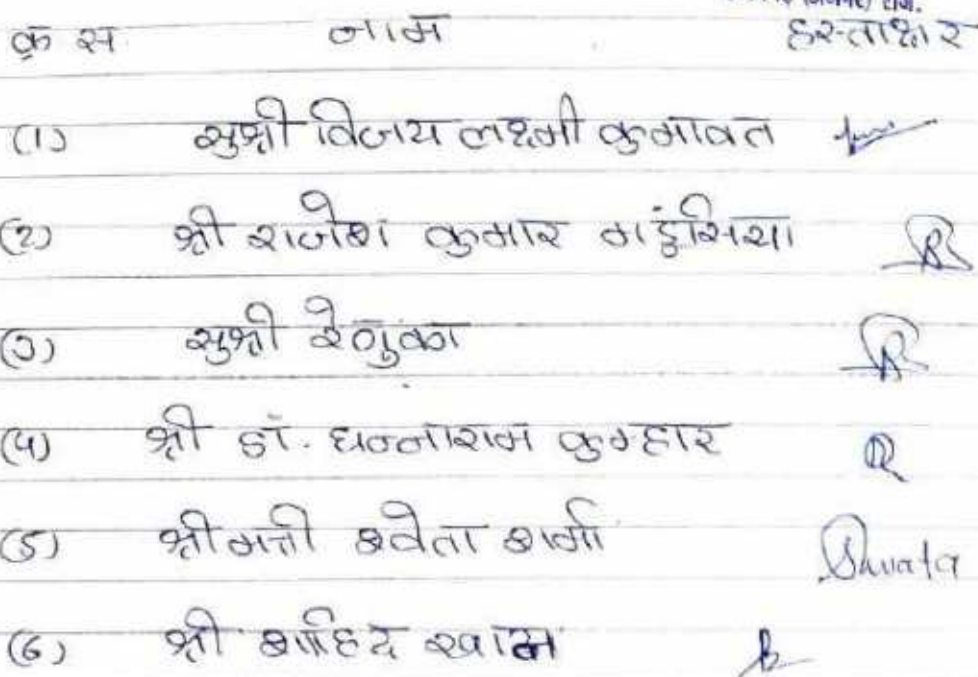 राज.
क्र स नाम हस्ताक्षर
(1) सुश्री विजय लक्ष्मी कुमावत
(2) श्री राजेश कुमार मंडुसिया
(3) सुश्री रेणुका
(4) श्री डॉ. धन्नाराम कुम्हार
(5) श्रीमती श्वेता शर्मा Shwata
(6) श्री शाहिद खान